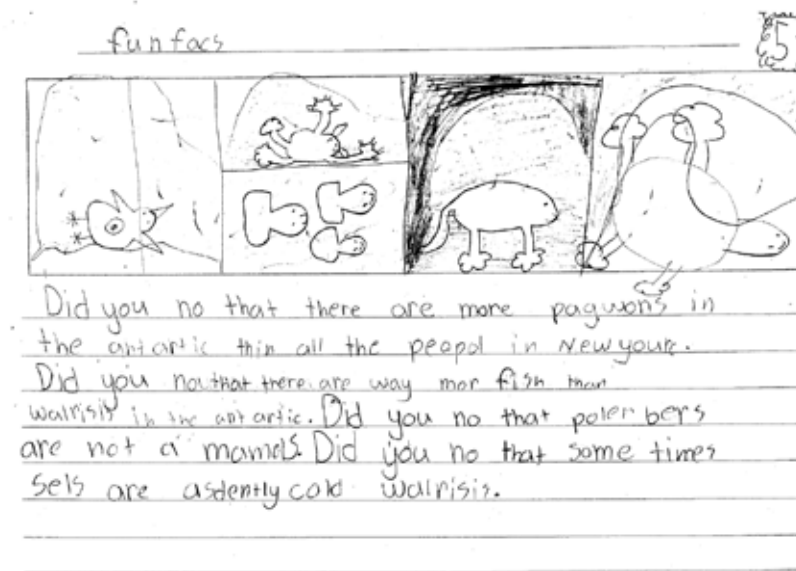 fun facs
5
Did you no that there are more pagwons in
the antartic thin all the peopol in Newyourk.
Did you no that there are way mor fish than
walrisis in the antartic. Did you no that poler bers
are not a mamels. Did you no that some times
sels are asdently cold walrisis.